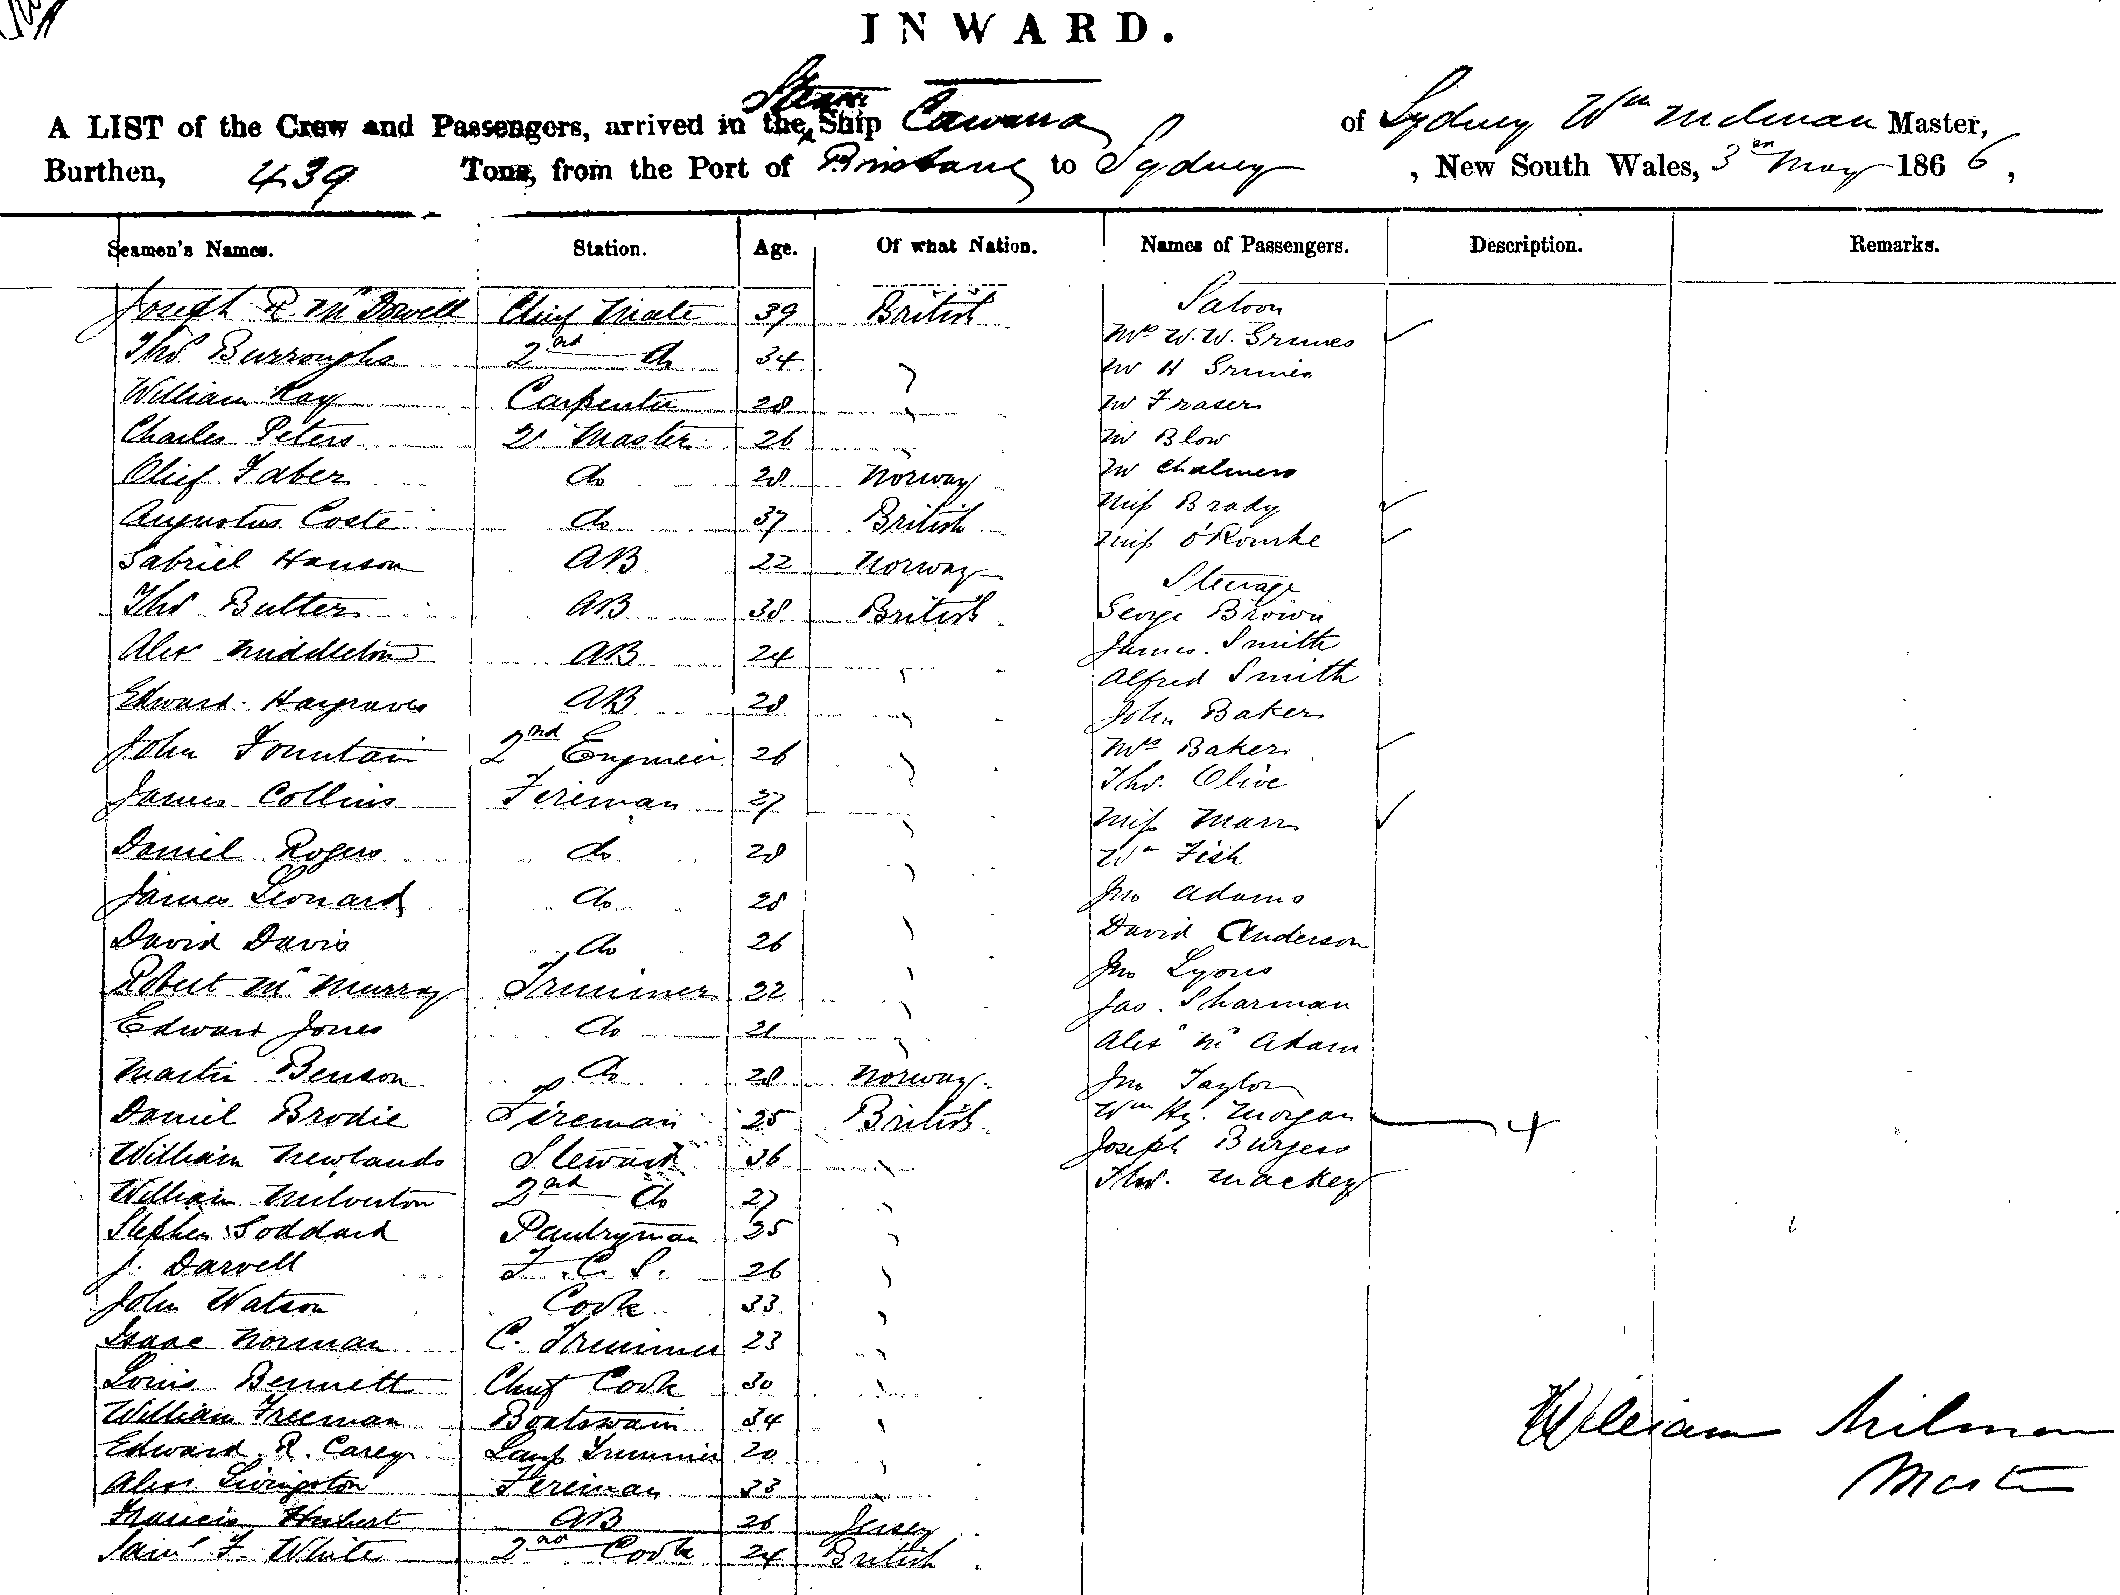 INWARD.
A LIST of the Crew and Passengers, arrived in the Steam Ship Cawarra of Sydney Wm Milman Master,
Burthen, 439 Tons, from the Port of Brisbane to Sydney, New South Wales, 3rd May 1866,
Seamen's Names. Station. Age. Of what Nation. Names of Passengers. Description. Remarks.
Joseph R McDowell Chief Mate 39 British
Thos Burroughs 2nd do 34 "
William Kay Carpenter 28 "
Charles Peters Qr Master 26 "
Olief Faber do 28 Norway
Augustus Coste do 37 British
Gabriel Hanson AB 22 Norway
Thos Butter AB 38 British
Alexr Middleton AB 24 "
Edward Hargraves AB 28 "
John Fountain 2nd Engineer 26 "
James Collins Fireman 27 "
Daniel Rogers do 28 "
James Leonard do 28 "
David Davis do 26 "
Robert McMurray Trimmer 22 "
Edward Jones do 21 "
Martin Benson do 28 Norway
Daniel Brodie Fireman 25 British
William Newlands Steward 36 "
William Milverton 2nd do 27 "
Stephen Goddard Pantryman 25 "
J. Darvell F. C. S. 26 "
John Watson Cook 33 "
Isaac Norman C. Trimmer 23 "
Louis Bennett Chief Cook 30 "
William Freeman Boatswain 34 "
Edward R. Carey Lamp Trimmer 20 "
Alexr Livingston Fireman 33 "
Francis Hubert AB 26 Jersey
Saml F. White 2nd Cook 24 British
Saloon
Mrs W. W. Grimes
Mr H Grimes
Mr Fraser
Mr Blow
Mr Chalmers
Miss Brady
Miss O'Rourke
Steerage
George Brown
James Smith
Alfred Smith
John Baker
Mrs Baker
Thos. Olive
Miss Marr
Wm Fish
Jno Adams
David Anderson
Jno Lyons
Jas. Sharman
Alexr McAdam
Jno Taylor
Wm Hy. Morgan
Joseph Burgess
Thos. Mackey
William Milman
Master